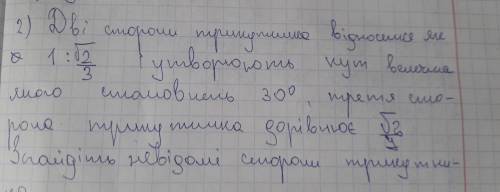 2) Дві сторони трикутника відносяться як
1 : √2/3 і утворюють кут величина
якого становить 30⁰, третя сто-
рона трикутника дорівнює
Знайдіть невідомі сторони трикутни-